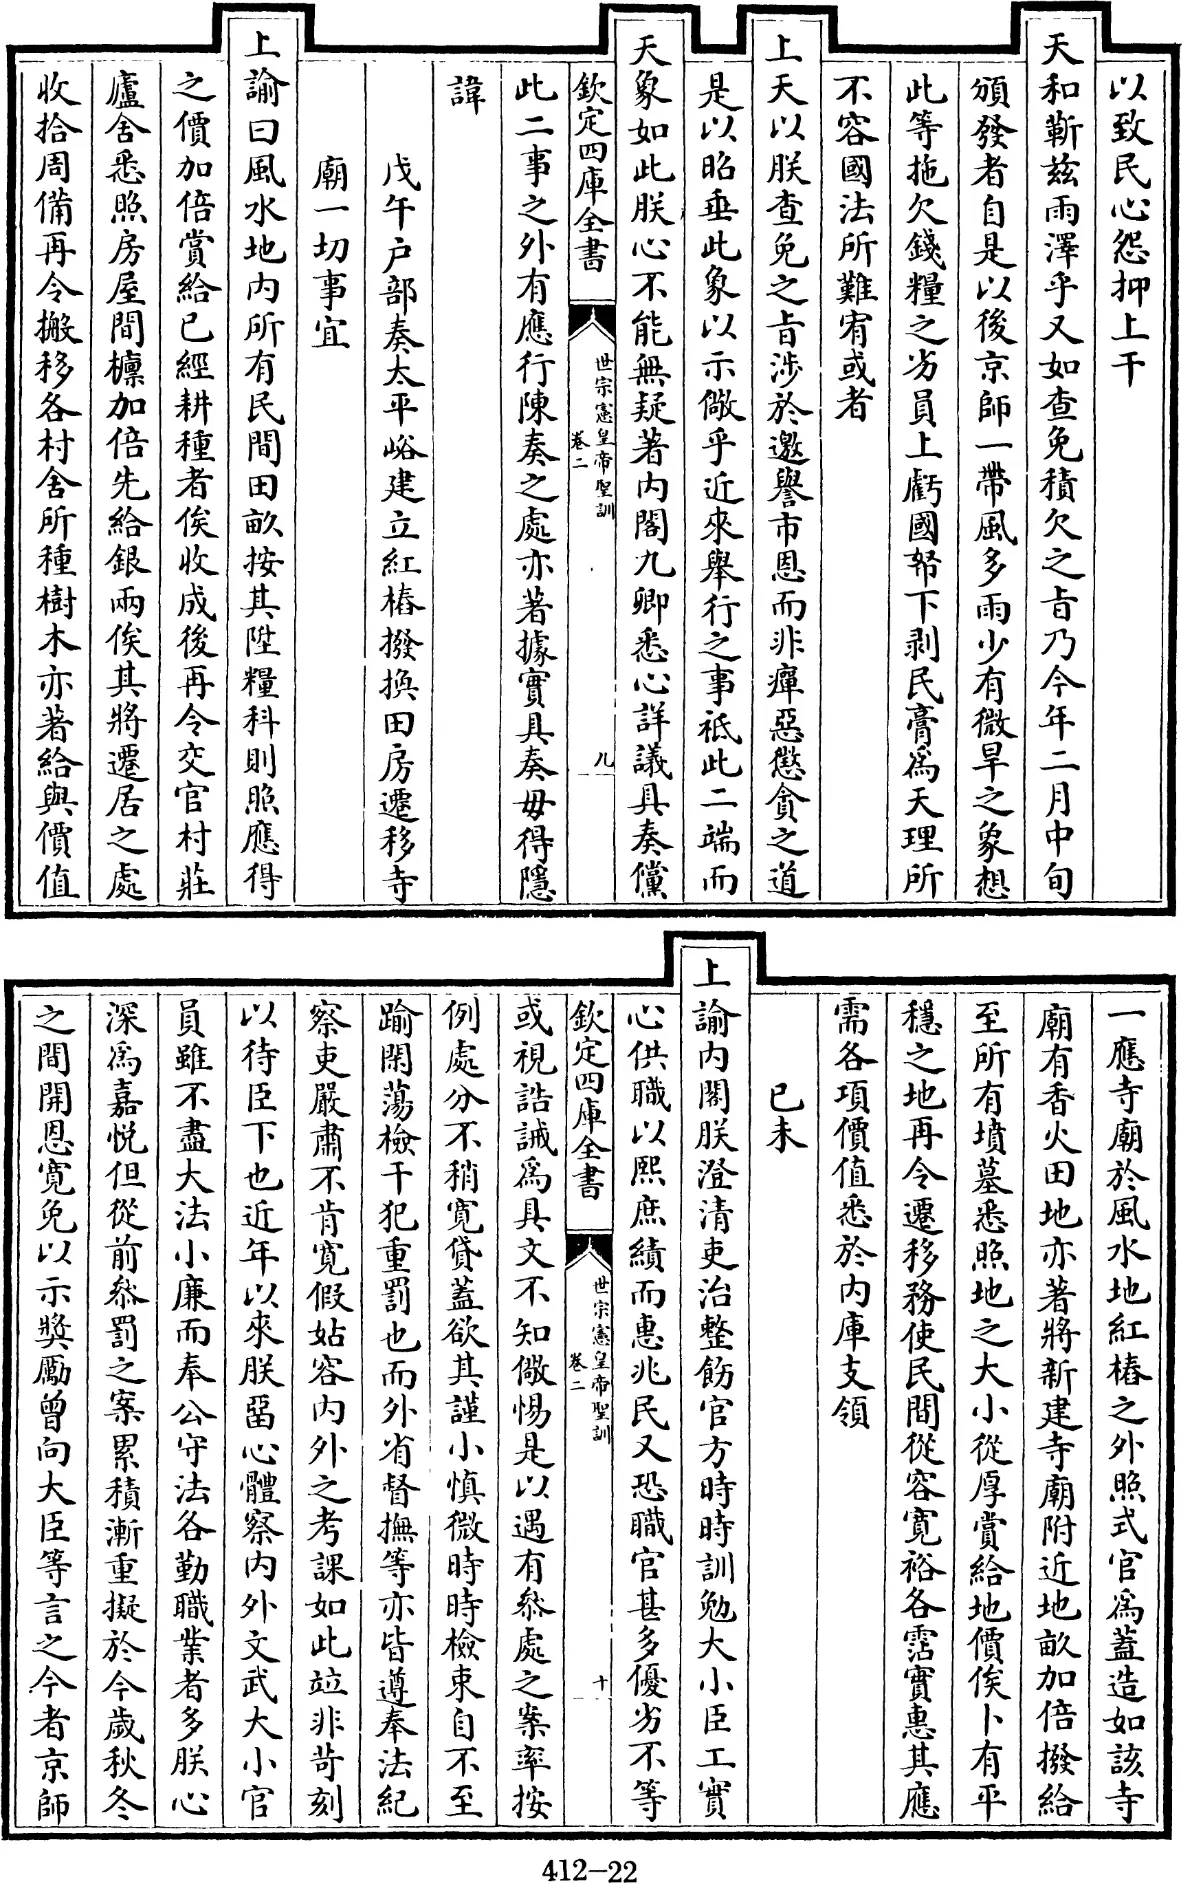 以致民心怨抑上干
天和蘄兹雨澤乎又如查免積欠之㫖乃今年二月中旬
頒發者自是以後京師一帶風多雨少有微旱之象想
此等拖欠錢糧之劣員上虧國帑下剥民膏為天理所
不容國法所難宥或者
上天以朕查免之㫖涉於邀譽市恩而非癉惡懲貪之道
是以昭垂此象以示儆乎近來舉行之事祇此二端而
天象如此朕心不能無疑著内閣九卿悉心詳議具奏儻
欽定四庫全書
世宗憲皇帝聖訓
卷二
九
此二事之外有應行陳奏之處亦著據實具奏毋得隱
諱
戊午户部奏太平峪建立紅樁撥換田房遷移寺
廟一切事宜
上諭曰風水地内所有民間田畝按其陞糧科則照應得
之價加倍賞給已經耕種者俟收成後再令交官村莊
廬舍悉照房屋間檁加倍先給銀兩俟其將遷居之處
收拾周備再令搬移各村舍所種樹木亦著給與價值
一應寺廟於風水地紅樁之外照式官為蓋造如該寺
廟有香火田地亦著將新建寺廟附近地畝加倍撥給
至所有墳墓悉照地之大小從厚賞給地價俟卜有平
穩之地再令遷移務使民間從容寛裕各霑實惠其應
需各項價值悉於内庫支領
已未
上諭内閣朕澄清吏治整飭官方時時訓勉大小臣工實
心供職以熙庶績而惠兆民又恐職官甚多優劣不等
欽定四庫全書
世宗憲皇帝聖訓
卷二
十
或視誥誡為具文不知儆惕是以遇有叅處之案率按
例處分不稍寛貸蓋欲其謹小慎微時時檢束自不至
踰閑蕩檢干犯重罰也而外省督撫等亦皆遵奉法紀
察吏嚴肅不肯寛假姑容内外之考課如此竝非苛刻
以待臣下也近年以來朕畱心體察内外文武大小官
員雖不盡大法小廉而奉公守法各勤職業者多朕心
深為嘉悦但從前叅罰之案累積漸重擬於今歲秋冬
之間開恩寛免以示奬勵曾向大臣等言之今者京師
412-22